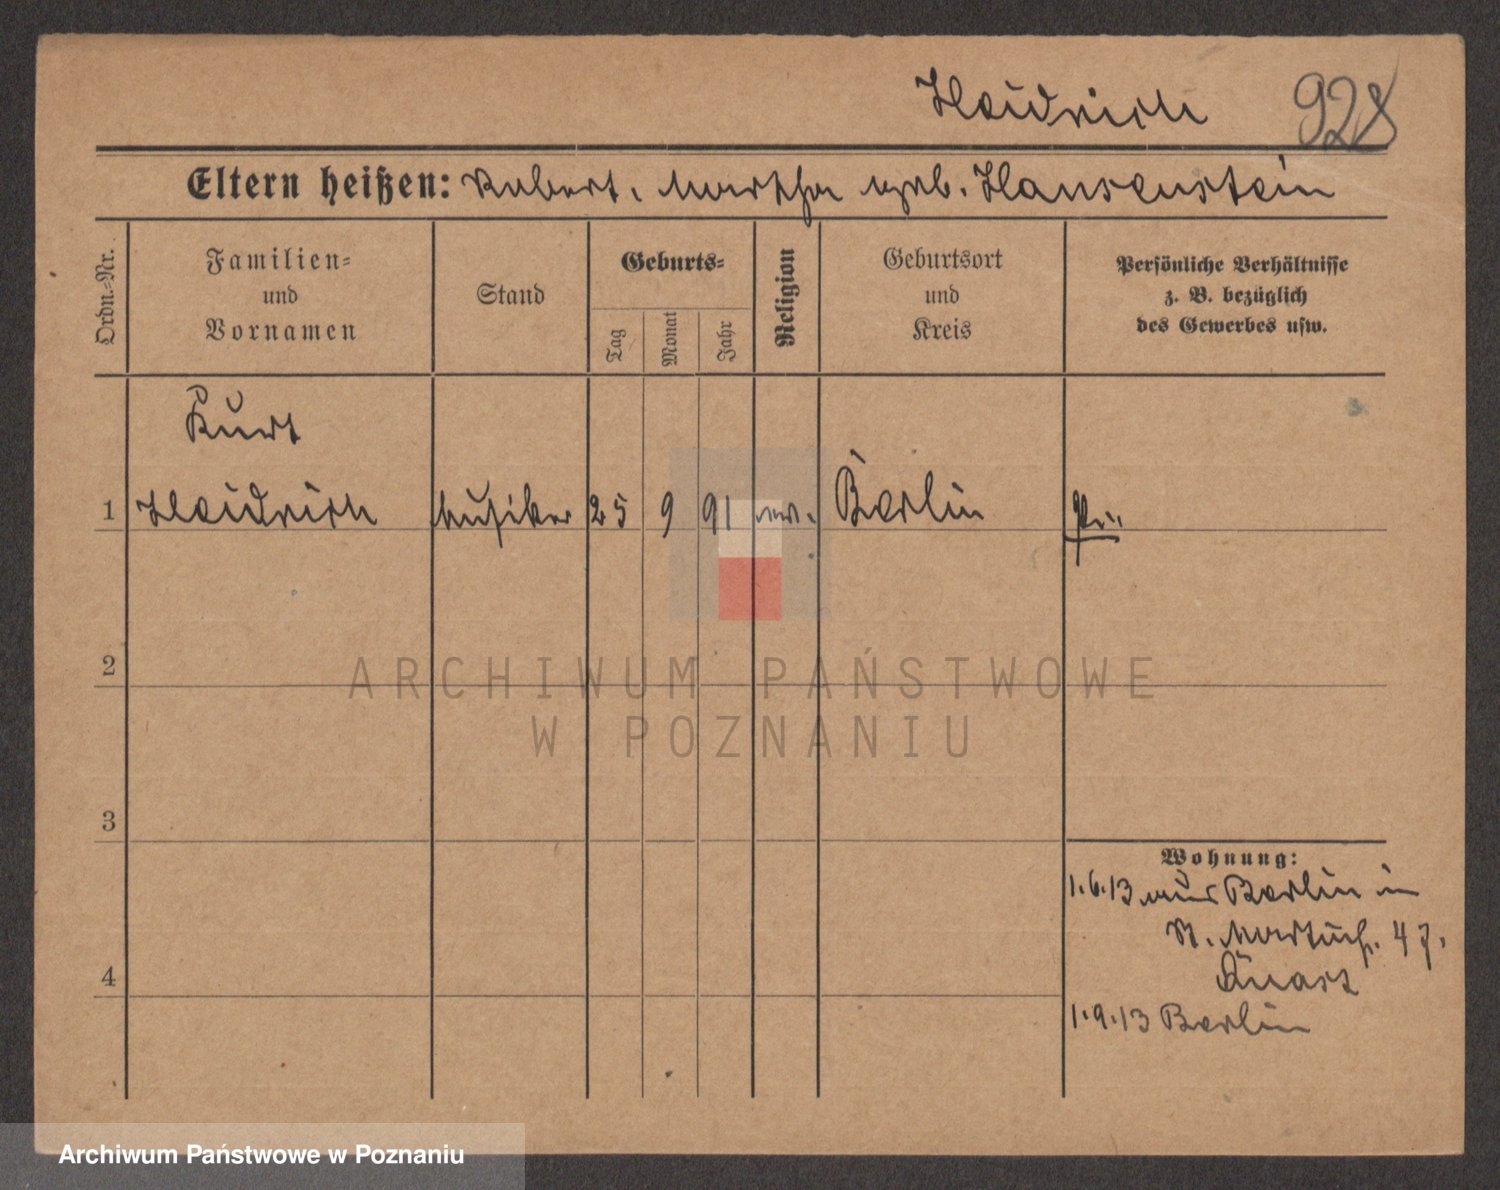 Heidrich 928
Eltern heißen: Robert, Martha geb. Hansenstein
Ordn.=Nr.
Familien=
und
Vornamen
Stand
Geburts=
Tag
Monat
Jahr
Religion
Geburtsort
und
Kreis
Persönliche Verhältnisse
z. B. bezüglich
des Gewerbes usw.
Kurt
1 Heidrich Musiker 25 9 91 ev. Berlin Pr.
2
3
4
Wohnung:
1.6.13 aus Berlin in
St. Martinstr. 47.
1.9.13 Berlin
ARCHIWUM PAŃSTWOWE
W POZNANIU
Archiwum Państwowe w Poznaniu